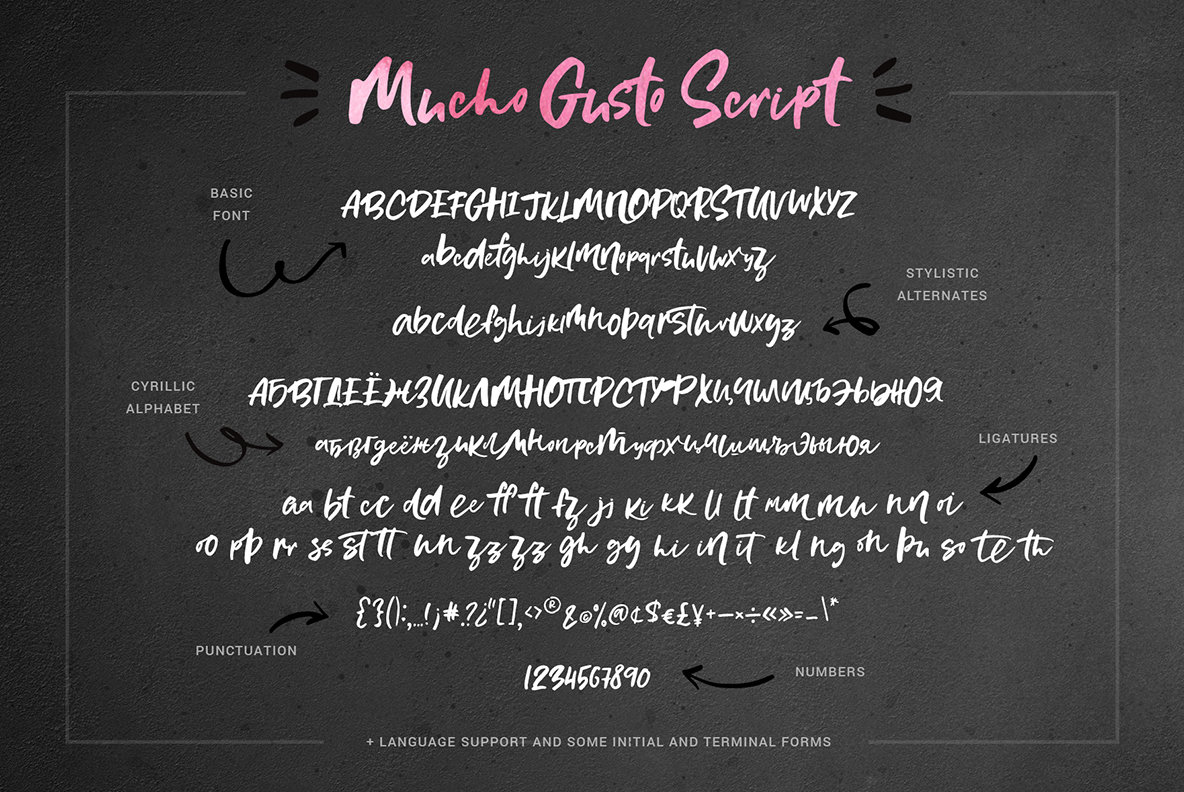 Mucho Gusto Script
BASIC
FONT
ABCDEFGHIJKLMNOPQRSTUVWXYZ
abcdefghijklmnopqrstuvwxyz
STYLISTIC
ALTERNATES
abcdefghijklmnopqrstuvwxyz
CYRILLIC
ALPHABET
АБВГДЕЁЖЗИКЛМНОПРСТУФХЦЧШЩЪЭЬЫЮЯ
абвгдеёжзиклмнопрстуфхцчшщъэьыюя
LIGATURES
aa bt cc dd ee ff ft fz jj ki kk ll lt mm mu nn oi
oo pp rr ss st tt un zz zz gh gg hi in it kl ng on pu so te th
PUNCTUATION
{}():,...!¡#.?¿"[],<>®&©%@¢$€£¥+−×÷«»=_\*
1234567890
NUMBERS
+ LANGUAGE SUPPORT AND SOME INITIAL AND TERMINAL FORMS